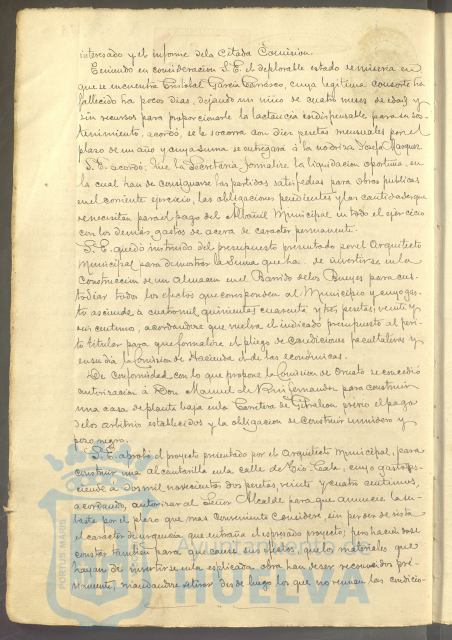 interesado y el informe de la Citada Comision.
Teniendo en consideracion S. E. el deplorable estado de miseria en
que se encuentra Cristobal Garcia Carrasco, cuya legitima consorte ha
fallecido ha pocos dias, dejando un niño de cuatro meses de edad y
sin recursos para proporcionarle la lactancia indispensable para su sos-
tenimiento, acordó, se le socorra con diez pesetas mensuales por el
plazo de un año y cuya suma se entregará á la nodriza Josefa Marquez
S. E. acordó: Que la Secretaria formalice la liquidacion oportuna, en
la cual han de consignarse las partidas satisfechas para obras publicas
en el corriente ejercicio, las obligaciones pendientes y las cantidades que
se necesitan para el pago del Albañil Municipal en todo el ejercicio
con los demas gastos de acera de caracter permanente.
S. E. quedó instruido del presupuesto presentado por el Arquitecto
Municipal para demostrar la Suma que ha de invertirse en la
Construccion de un Almacen en el Barrido de los Bueyes para cus-
todiar todos los efectos que corresponden al Municipio y cuyo gas-
to asciende á cuatro mil quinientas cuarenta y tres pesetas, veinte y
seis centimos, acordandose que vuelva el indicado presupuesto al peri-
to titular para que formalice el pliego de condiciones facultativas y
en su dia la Comision de Hacienda el de las económicas.
De conformidad con lo que propone la Comision de Ornato se concedió
autorizacion á Don Manuel de Ruifernandez para construir
una casa de planta baja en la Carretera de Gibraleon previo el pago
de los arbitrios establecidos y la obligacion de construir sumidero y
pozo negro.
S. E. aprobó el proyecto presentado por el Arquitecto Municipal, para
construir una alcantarilla en la calle de Tio Cala, cuyo gasto as-
ciende á dos mil novecientas dos pesetas, veinte y cuatro centimos,
acordando, autorizar al Señor Alcalde para que anuncie la su-
basta por el plazo que mas conveniente considere, sin perder de vista
el caracter de urgencia que entraña el expresado proyecto; pero haciendose
constar tambien para que cause sus efectos, que los materiales que
hayan de invertirse en la explicada obra han de ser reconocidos pre-
viamente, mandandose retirar desde luego los que no reunan las condicio-
PORTUS MARIS
HUELVA